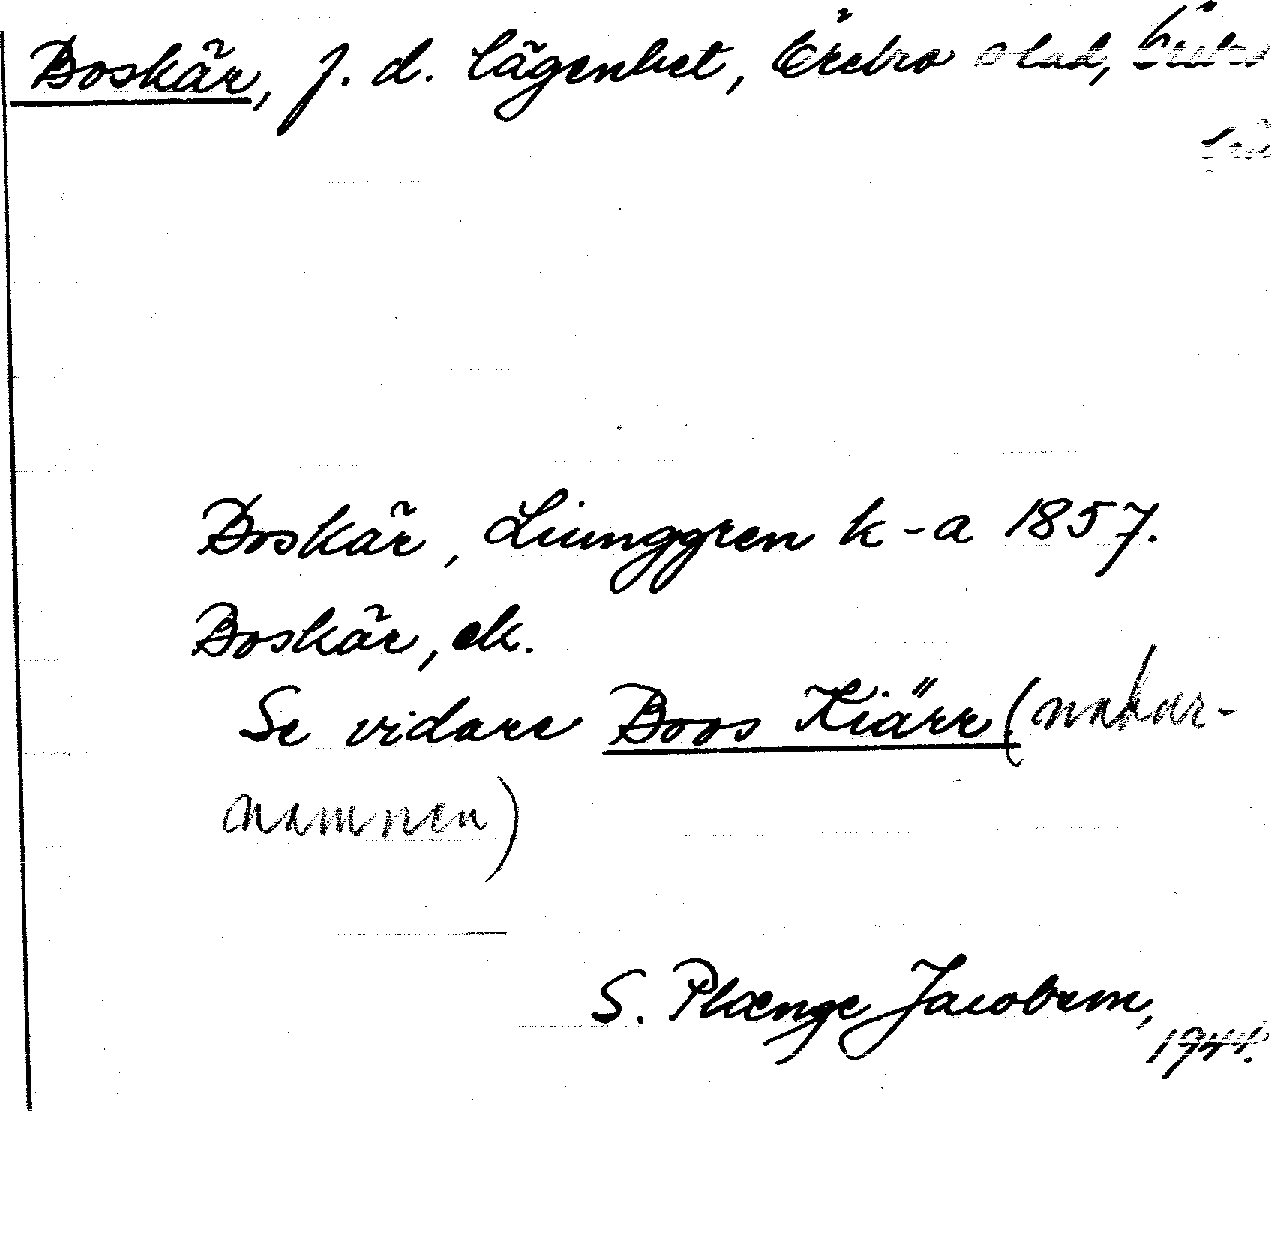 Boskär, f. d. lägenhet, Örebro stad, Örebro
Boskär, Liunggren k-a 1857.
Boskär, ek.
Se vidare Boos Kiärr (natur-
namnen)
S. Plænge Jacobson,
1944.